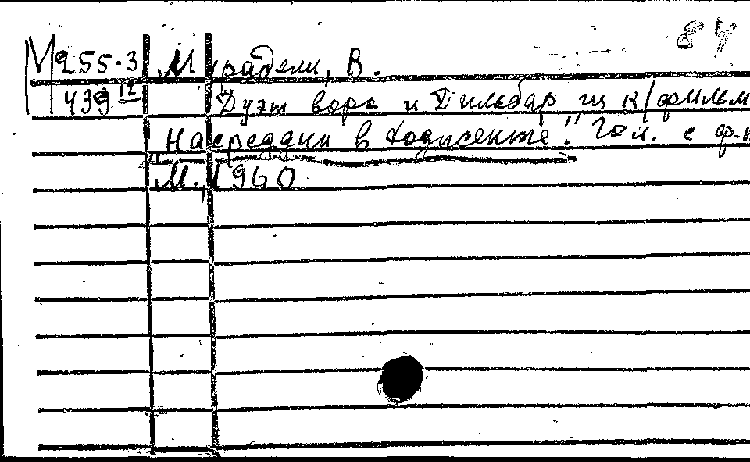 84
М 255-3 Мурадели, В.
439 12 Дуэт вора и Дильбар из к/фильм
"Насреддин в Ходженте". Гол. с ф-п
М. 1960